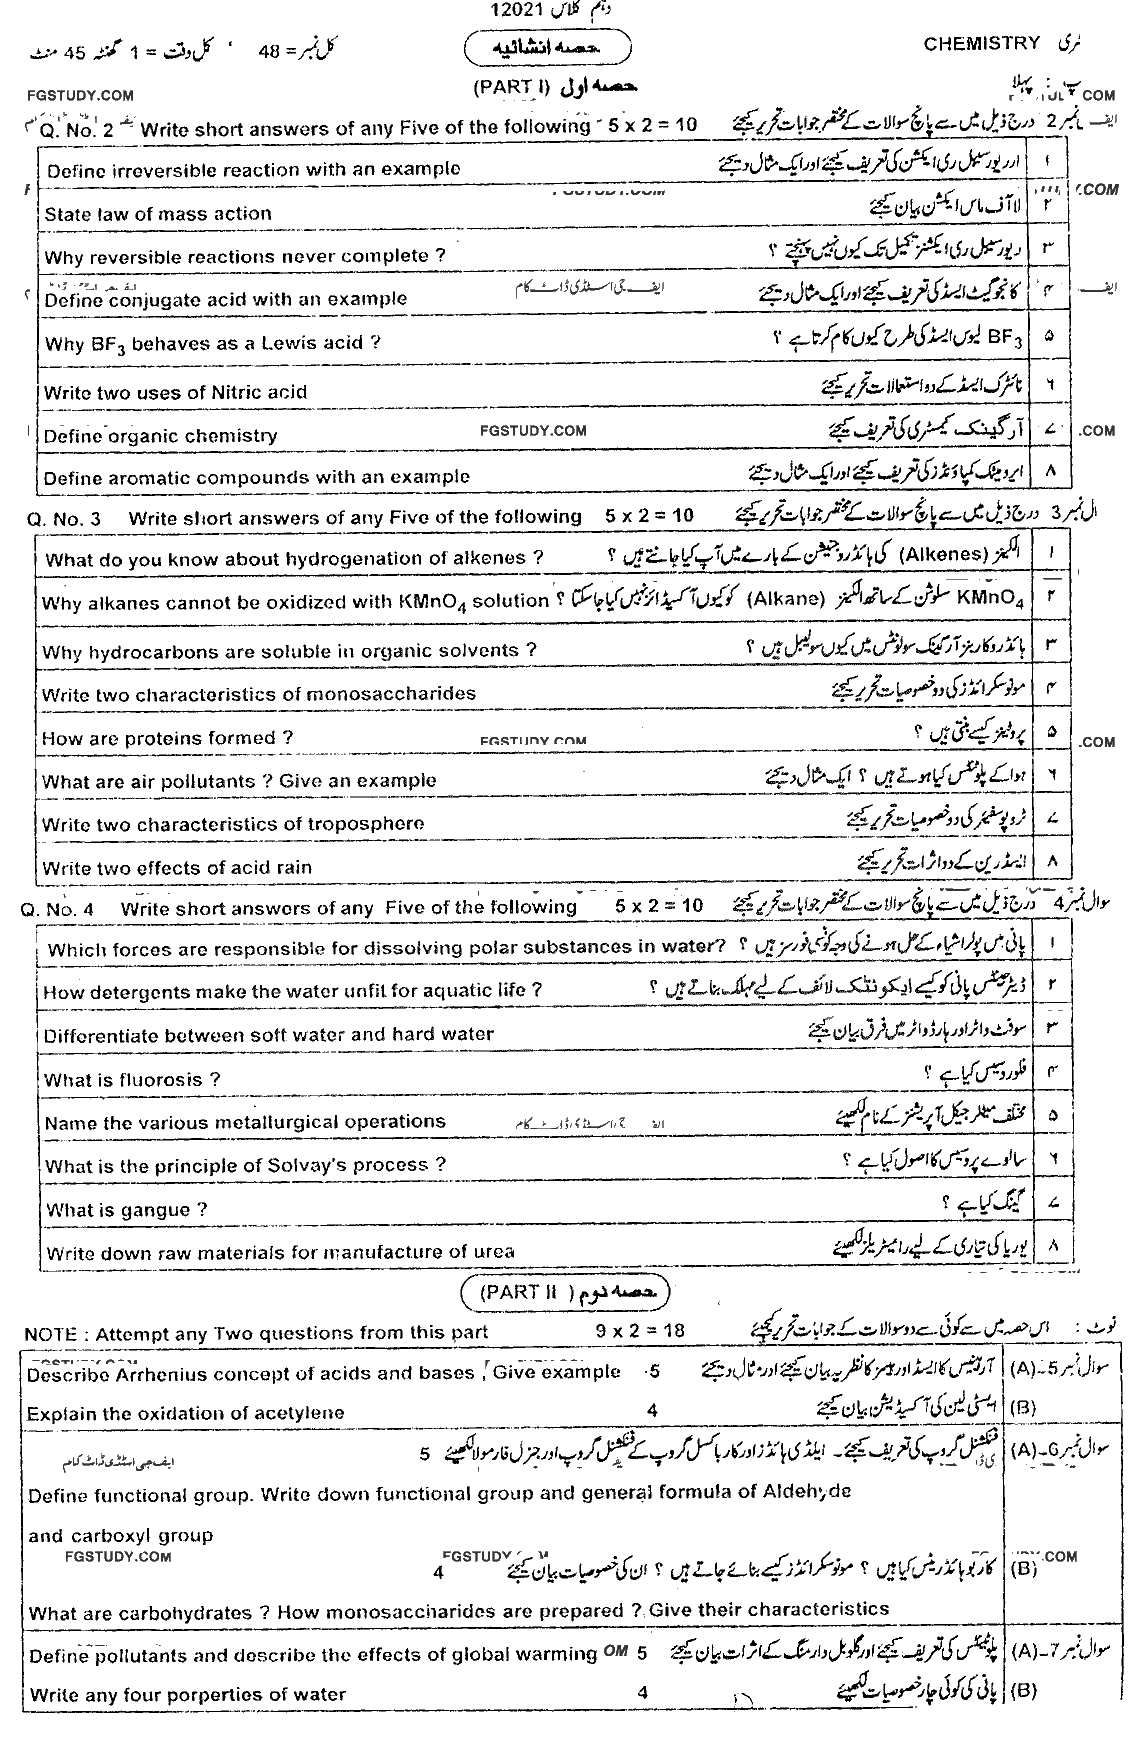 دہم کلاس 12021
CHEMISTRY ٹری
حصہ انشائیہ
کل نمبر = 48 کل وقت = 1 گھنٹہ 45 منٹ
(PART I) حصہ اول
FGSTUDY.COM
پہلا
COM
Q. No. 2 Write short answers of any Five of the following 5 x 2 = 10 نمبر 2 درج ذیل میں سے پانچ سوالات کے مختصر جوابات تحریر کیجئے
Define irreversible reaction with an example ارریورسیبل ری ایکشن کی تعریف کیجئے اور ایک مثال دیجئے ۱
.COM
State law of mass action لا آف ماس ایکشن بیان کیجئے ۲
Why reversible reactions never complete ? ریورسیبل ری ایکشنز تکمیل تک کیوں نہیں پہنچتے ؟ ۳
Define conjugate acid with an example ایف جی اسٹڈی ڈاٹ کام کانجوگیٹ ایسڈ کی تعریف کیجئے اور ایک مثال دیجئے ۴
Why BF3 behaves as a Lewis acid ? BF3 لیوس ایسڈ کی طرح کیوں کام کرتا ہے ؟ ۵
Write two uses of Nitric acid نائٹرک ایسڈ کے دو استعمالات تحریر کیجئے ۶
Define organic chemistry FGSTUDY.COM آرگینک کیمسٹری کی تعریف کیجئے ۷ .COM
Define aromatic compounds with an example ایرومیٹک کمپاؤنڈز کی تعریف کیجئے اور ایک مثال دیجئے ۸
Q. No. 3 Write short answers of any Five of the following 5 x 2 = 10 ال نمبر 3 درج ذیل میں سے پانچ سوالات کے مختصر جوابات تحریر کیجئے
What do you know about hydrogenation of alkenes ? الکینز (Alkenes) کی ہائڈروجنیشن کے بارے میں آپ کیا جانتے ہیں ؟ ۱
Why alkanes cannot be oxidized with KMnO4 solution ? KMnO4 سلوشن کے ساتھ الکینز (Alkane) کو کیوں آکسیڈائز نہیں کیا جا سکتا ؟ ۲
Why hydrocarbons are soluble in organic solvents ? ہائڈروکاربنز آرگینک سولونٹس میں کیوں سولیبل ہیں ؟ ۳
Write two characteristics of monosaccharides مونوسکرائڈز کی دو خصوصیات تحریر کیجئے ۴
How are proteins formed ? FGSTUDY.COM پروٹینز کیسے بنتی ہیں ؟ ۵ .COM
What are air pollutants ? Give an example ہوا کے پلوٹنٹس کیا ہوتے ہیں ؟ ایک مثال دیجئے ۶
Write two characteristics of troposphere ٹروپوسفیئر کی دو خصوصیات تحریر کیجئے ۷
Write two effects of acid rain ایسڈ رین کے دو اثرات تحریر کیجئے ۸
Q. No. 4 Write short answers of any Five of the following 5 x 2 = 10 سوال نمبر 4 درج ذیل میں سے پانچ سوالات کے مختصر جوابات تحریر کیجئے
Which forces are responsible for dissolving polar substances in water? پانی میں پولر اشیاء کے حل ہونے کی وجہ کونسی فورسز ہیں ؟ ۱
How detergents make the water unfit for aquatic life ? ڈیٹرجنٹس پانی کو کیسے ایکوئٹک لائف کے لیے مہلک بناتے ہیں ؟ ۲
Differentiate between soft water and hard water سوفٹ واٹر اور ہارڈ واٹر میں فرق بیان کیجئے ۳
What is fluorosis ? فلوروسس کیا ہے ؟ ۴
Name the various metallurgical operations مختلف میٹلرجیکل آپریشنز کے نام لکھیئے ۵
What is the principle of Solvay's process ? سالوے پروسیس کا اصول کیا ہے ؟ ۶
What is gangue ? گینگ کیا ہے ؟ ۷
Write down raw materials for manufacture of urea یوریا کی تیاری کے لیے رامیٹریلز لکھیئے ۸
(PART II) حصہ دوم
NOTE : Attempt any Two questions from this part 9 x 2 = 18 نوٹ : اس حصہ میں سے کوئی سے دو سوالات کے جوابات تحریر کیجئے
Describe Arrhenius concept of acids and bases , Give example 5 آرہینیس کا ایسڈ اور بیسز کا نظریہ بیان کیجئے اور مثال دیجئے سوال نمبر 5-(A)
Explain the oxidation of acetylene 4 ایسٹی لین کی آکسیڈیشن بیان کیجئے (B)
ایف جی اسٹڈی ڈاٹ کام 5 فنکشنل گروپ کی تعریف کیجئے۔ ایلڈی ہائڈز اور کارباکسل گروپ کے فنکشنل گروپ اور جنرل فارمولا لکھیئے سوال نمبر 6-(A)
Define functional group. Write down functional group and general formula of Aldehyde
and carboxyl group
FGSTUDY.COM FGSTUDY .COM
4 کاربوہائڈریٹس کیا ہیں ؟ مونوسکرائڈز کیسے بنائے جاتے ہیں ؟ ان کی خصوصیات بیان کیجئے (B)
What are carbohydrates ? How monosaccharides are prepared ? Give their characteristics
Define pollutants and describe the effects of global warming OM 5 پلوٹنٹس کی تعریف کیجئے اور گلوبل وارمنگ کے اثرات بیان کیجئے سوال نمبر 7-(A)
Write any four porperties of water 4 پانی کی کوئی چار خصوصیات لکھیئے (B)